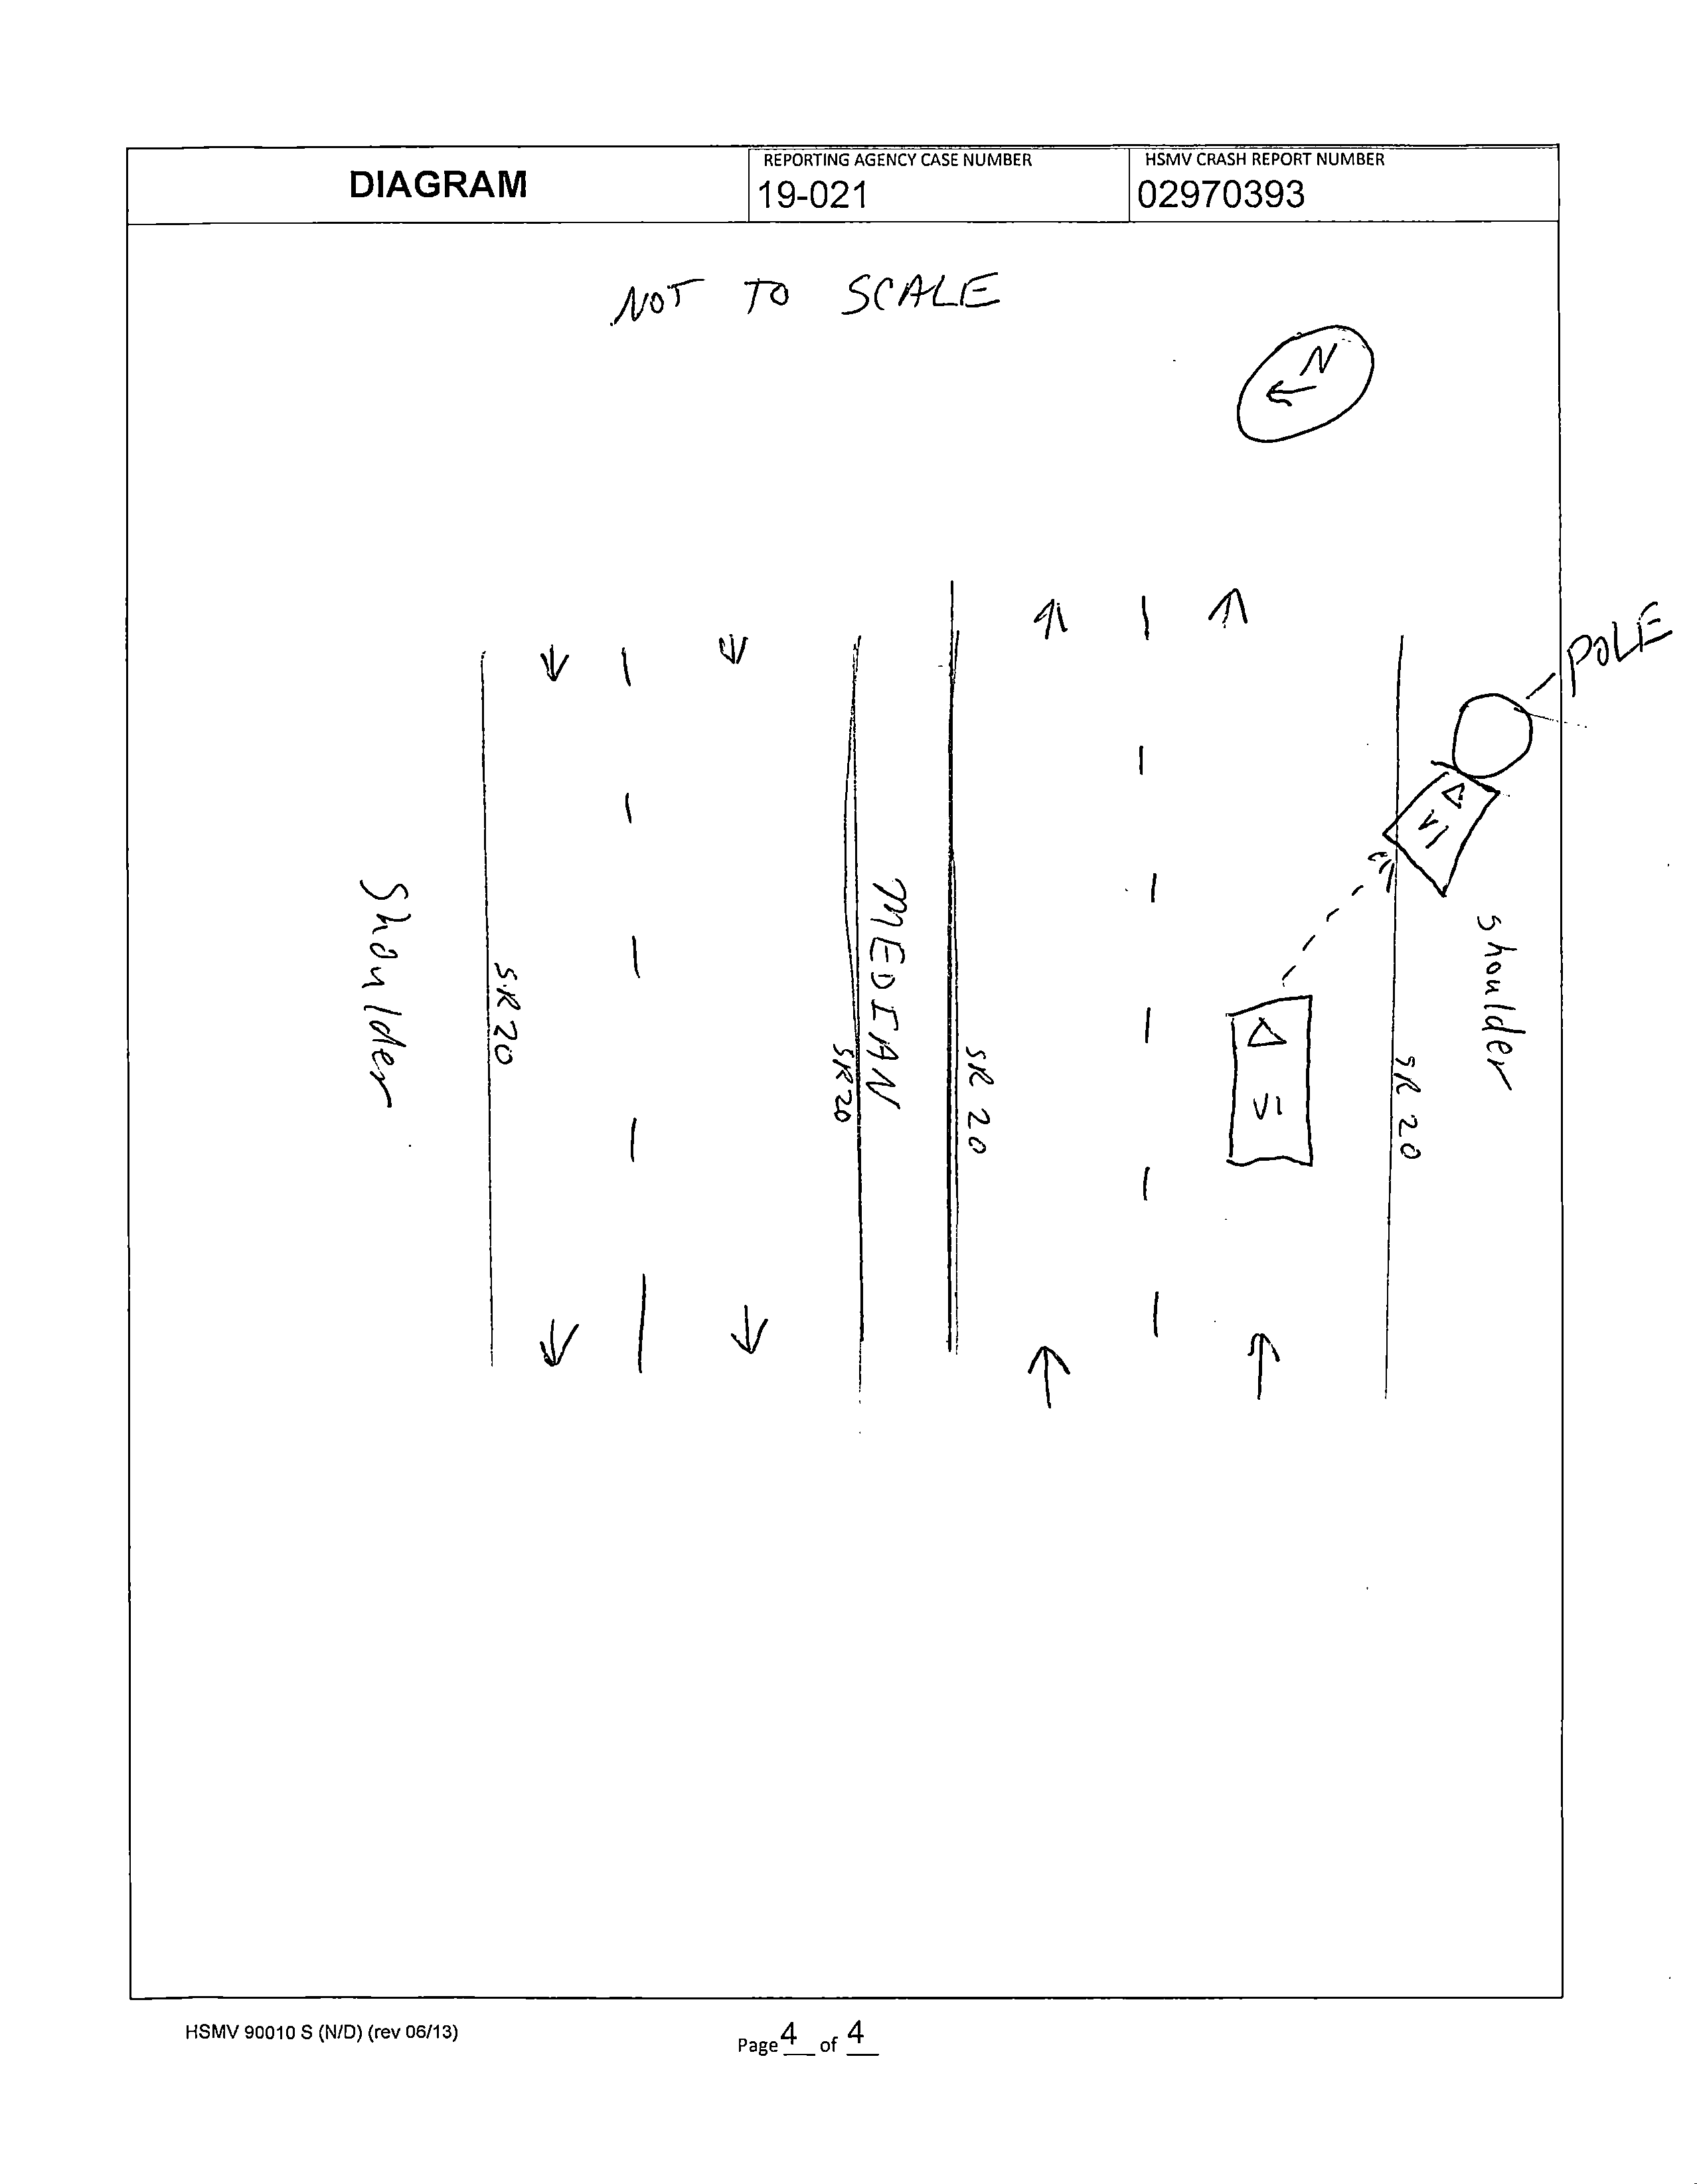 DIAGRAM
REPORTING AGENCY CASE NUMBER
19-021
HSMV CRASH REPORT NUMBER
02970393
NOT TO SCALE
N
POLE
V1
shoulder
Shoulder
SR 20
MEDIAN
SR 20
SR 20
V1
SR 20
HSMV 90010 S (N/D) (rev 06/13)
Page 4 of 4